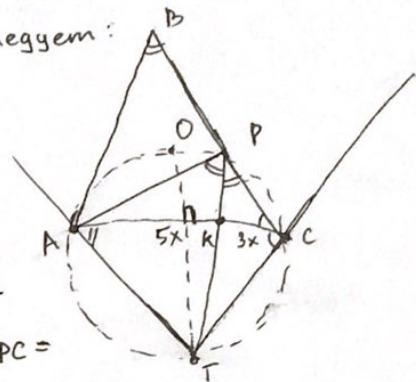 legyem:
B
O
P
A
5x
K
3x
C
PC =
T